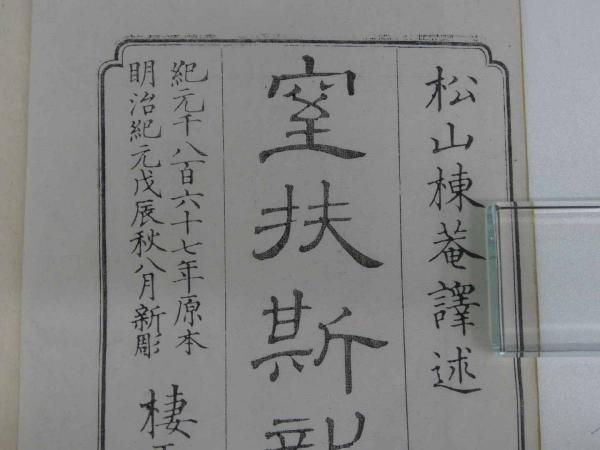 松山棟菴譯述
窒扶斯新
紀元千八百六十七年原本
明治紀元戊辰秋八月新彫
棲